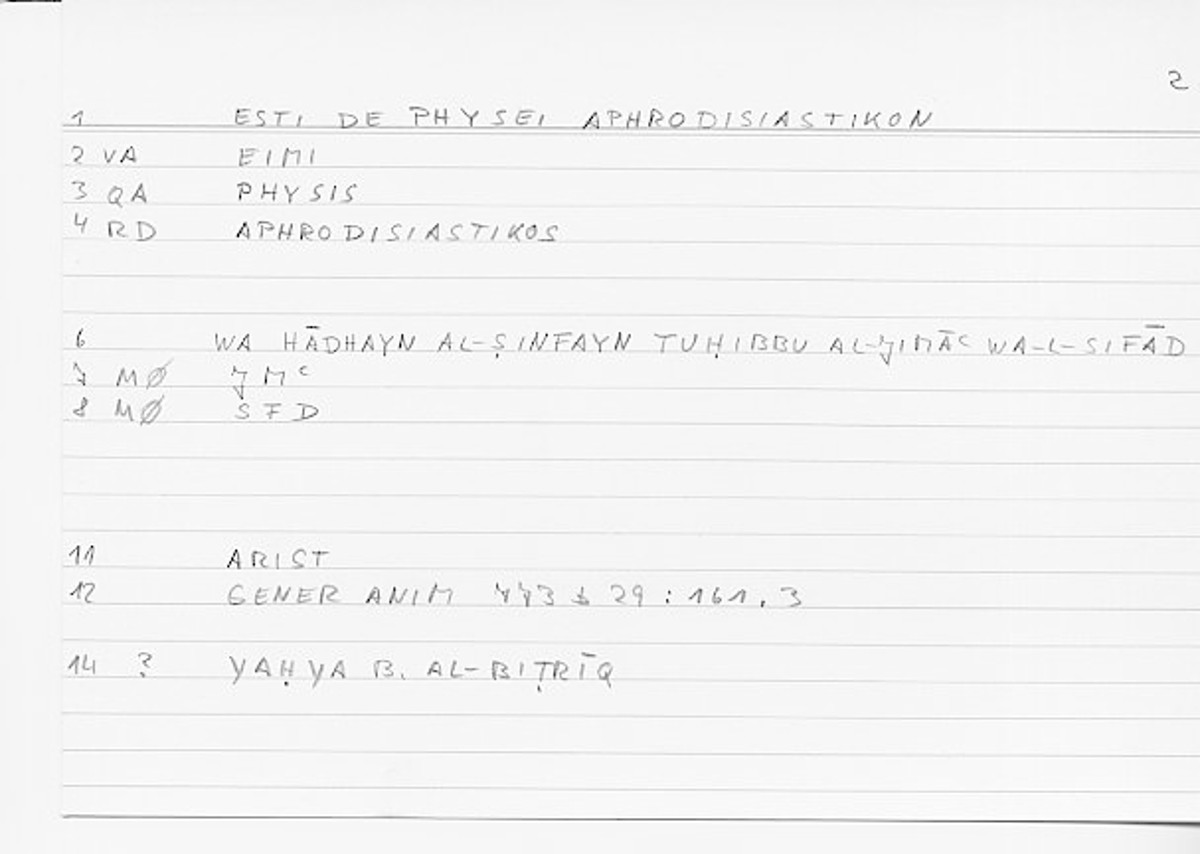 2
1 ESTI DE PHYSEI APHRODISIASTIKON
2 VA EIMI
3 QA PHYSIS
4 RD APHRODISIASTIKOS
6 WA HĀDHAYN AL-ṢINFAYN TUḤIBBU AL-JIMĀC WA-L-SIFĀD
7 MØ JMC
8 MØ SFD
11 ARIST
12 GENER ANIM 773 b 29 : 161, 3
14 ? YAḤYA B. AL-BIṬRĪQ